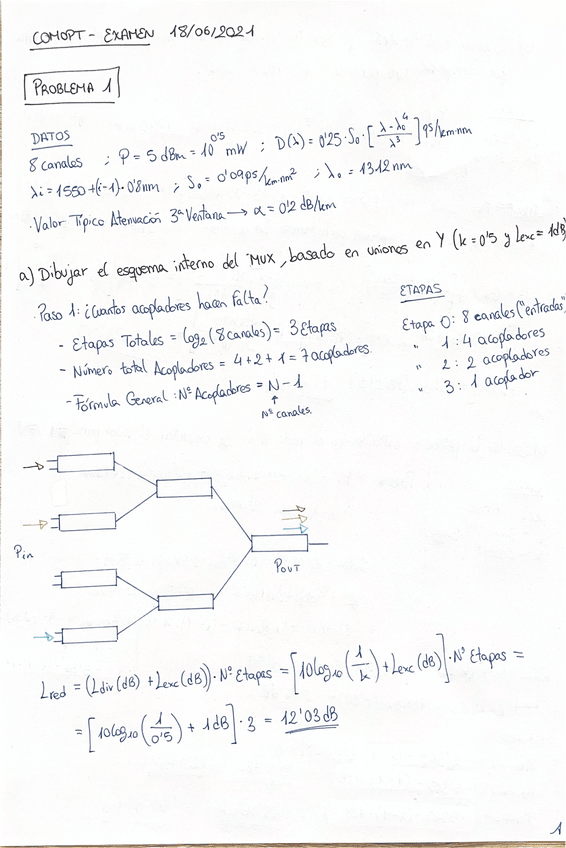 COMOPT - EXAMEN 18/06/2021
PROBLEMA 1
DATOS
8 canales ; P = 5 dBm = 10^0'5 mW ; D(λ) = 0'25 · S₀ · [λ - λ₀⁴/λ³] ps/km·nm
λi = 1550 + (i-1) · 0'8nm ; S₀ = 0'09 ps/km·nm² ; λ₀ = 1312 nm
· Valor Típico Atenuación 3ª Ventana → α = 0'2 dB/km
a) Dibujar el esquema interno del MUX, basado en uniones en Y (k = 0'5 y Lexc = 1dB)
· Paso 1: ¿Cuantos acopladores hacen falta?
- Etapas Totales = log₂(8 canales) = 3 Etapas
- Número total Acopladores = 4+2+1 = 7 acopladores.
- Fórmula General: Nº Acopladores = N-1
↑
Nº canales.
ETAPAS
Etapa 0: 8 canales ("entradas")
" 1: 4 acopladores
" 2: 2 acopladores
" 3: 1 acoplador
Pin
POUT
Lred = (Ldiv(dB) + Lexc(dB)) · Nº Etapas = [10log₁₀(1/k) + Lexc(dB)] · Nº Etapas =
= [10log₁₀(1/0'5) + 1dB] · 3 = 12'03 dB
1